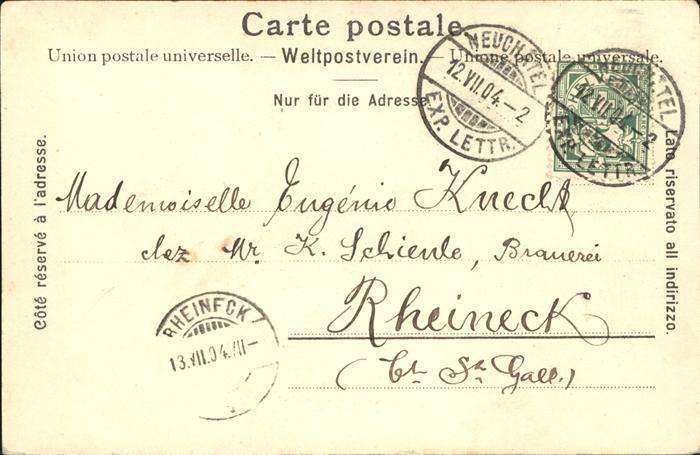 Carte postale.
Union postale universelle. — Weltpostverein. — Unione postale universale.
Nur für die Adresse
NEUCHATEL
12.VII.04.-2
EXP. LETTR.
NEUCHATEL
12.VII.04.-2
EXP. LETTR.
Côté réservé à l'adresse.
Lato riservato all indirizzo.
Mademoiselle Eugénie Knecht
chez Mr. K. Schienle, Brauerei
Rheineck
(Ct. St. Gall.)
RHEINECK
13.VII.04.VII-